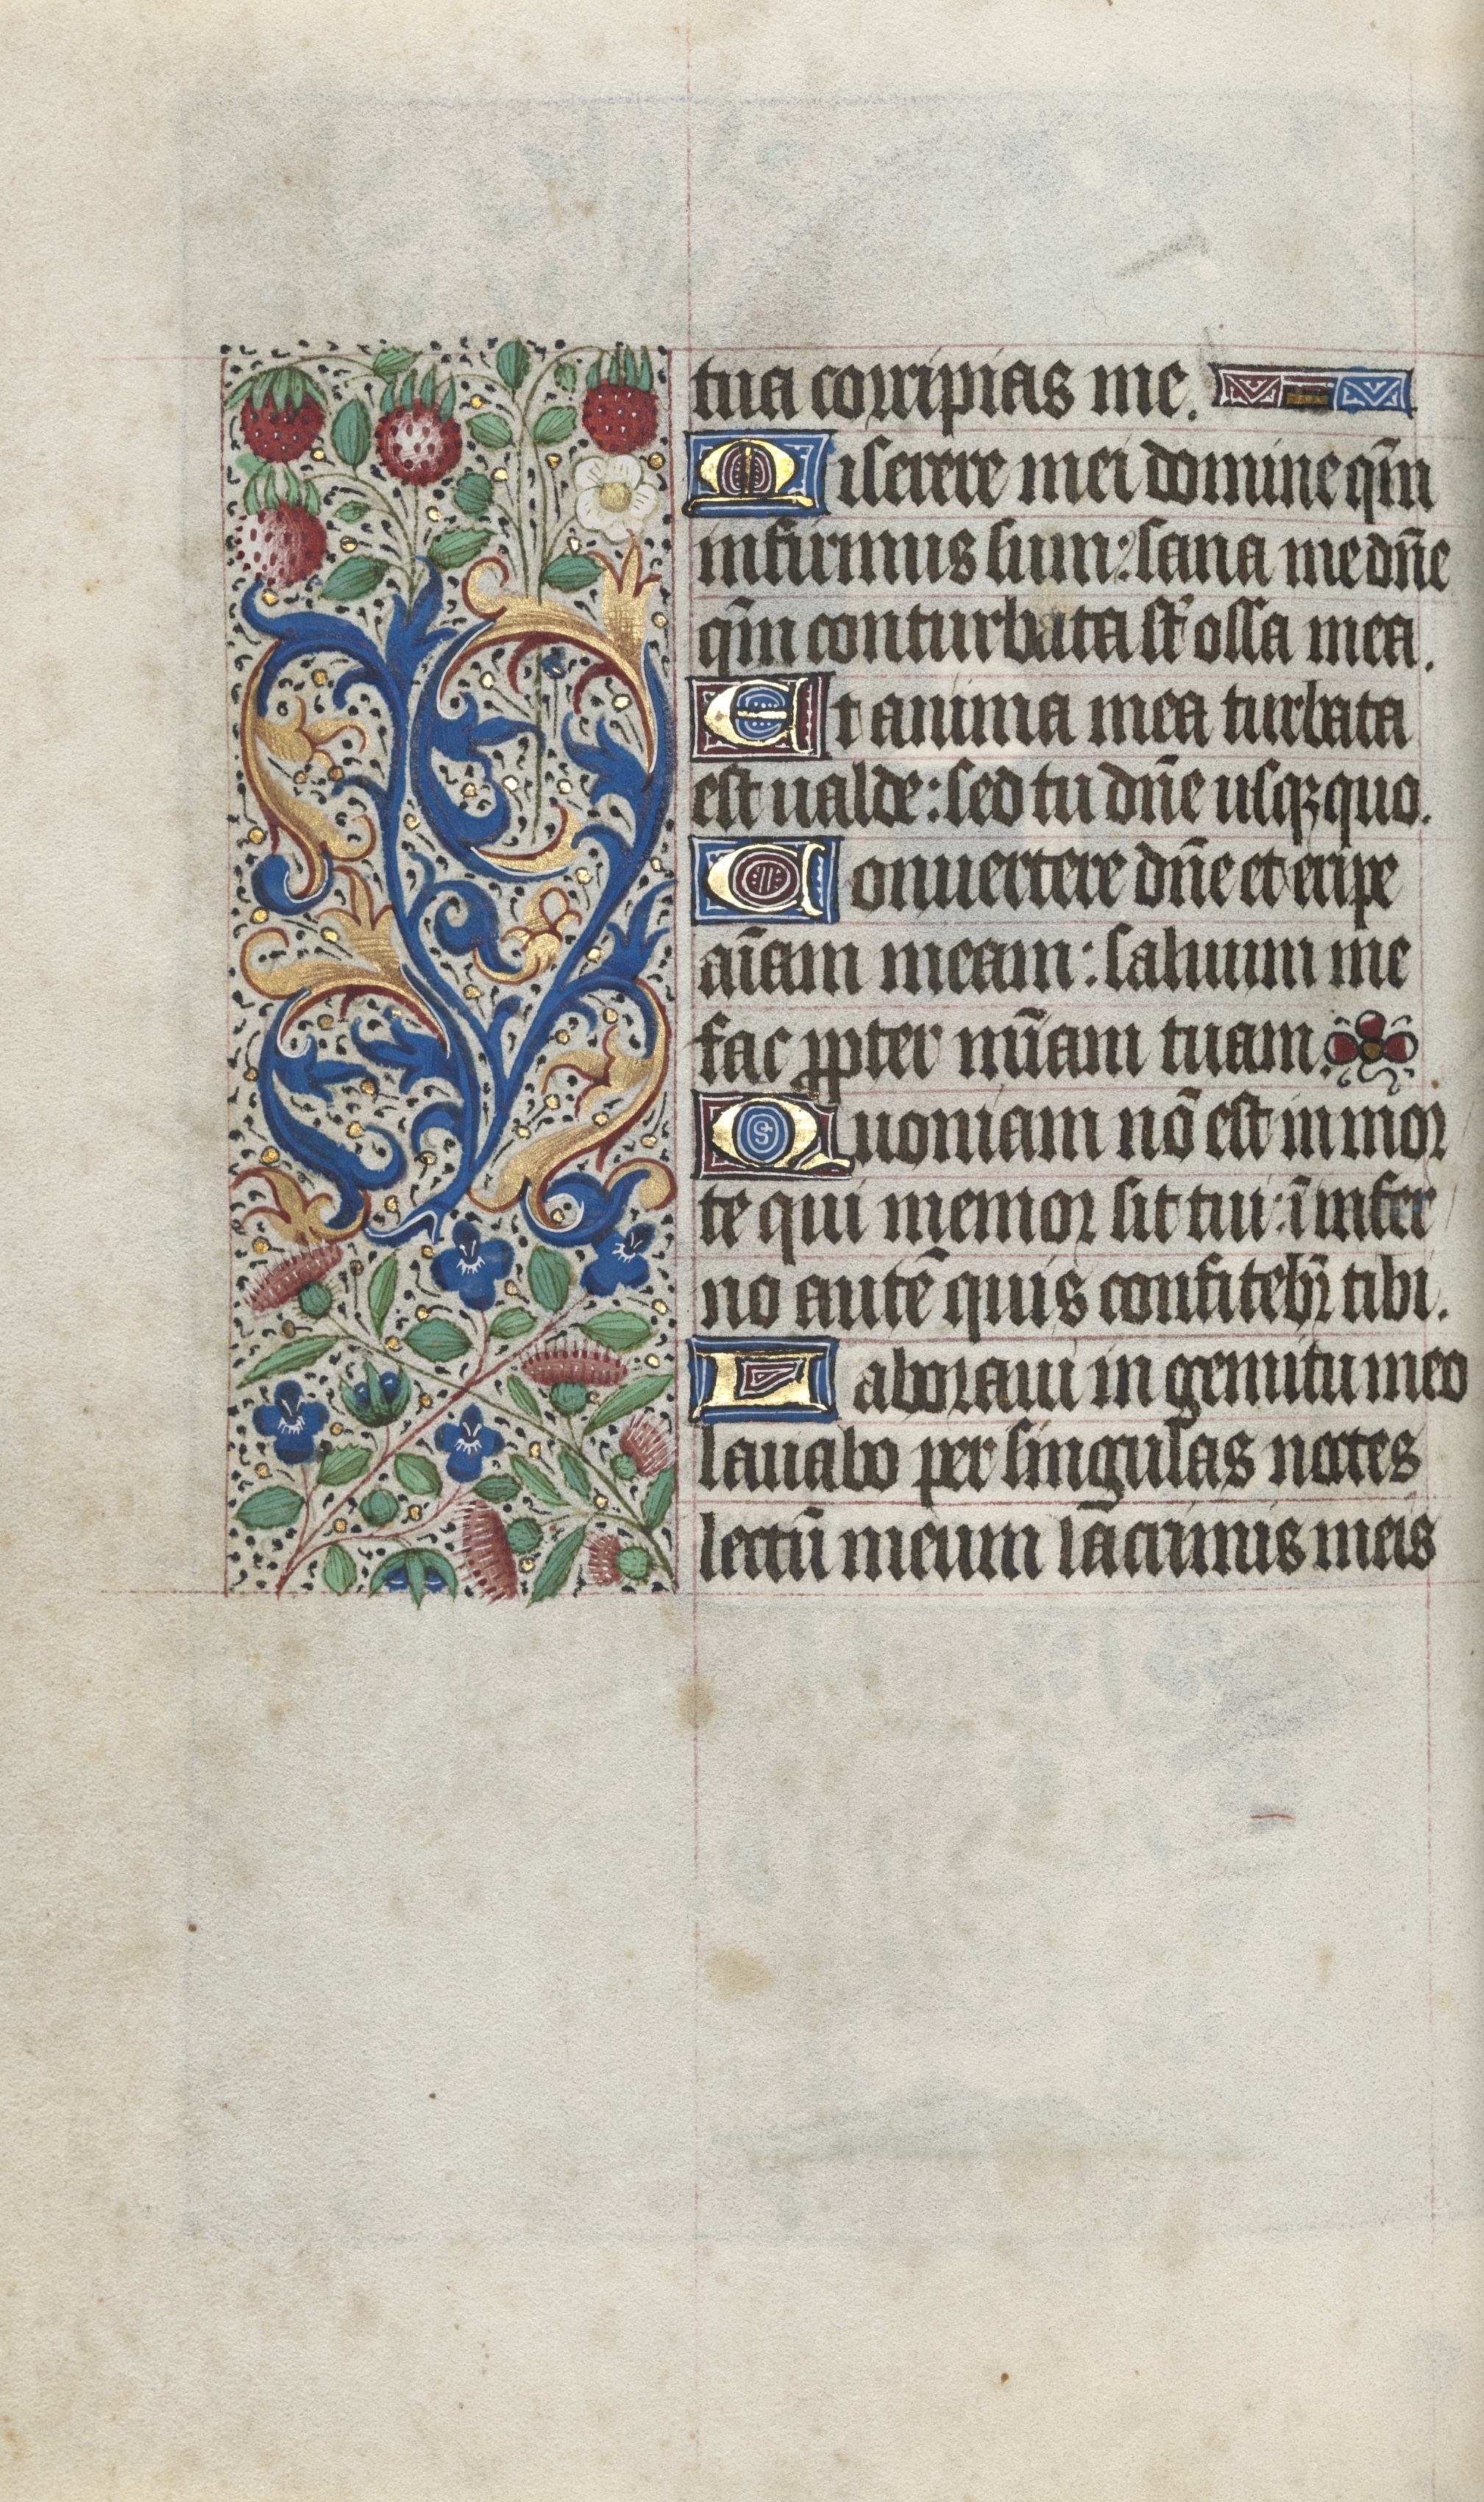 tua corripias me.
Miserere mei domine qm̄
infirmus sum: sana me dn̄e
qm̄ conturbata st̄ ossa mea.
Et anima mea turbata
est ualde: sed tu dn̄e usqꝫ quo.
Conuertere dn̄e et eripe
aīam meam: saluum me
fac ꝓpter mīam tuam.
Quoniam nō est in mor
te qui memor sit tui: ī infer
no autē quis confitebr̄ tibi.
Laboraui in gemitu meo
lauabo per singulas noctes
lectū meum lācrimis meis